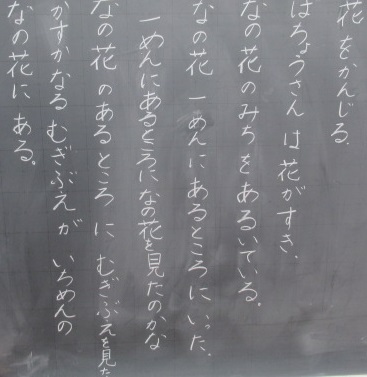 花をかんじる。
はろょうさんは花がすき。
なの花のみちをあるいている。
なの花一めんにあるところにいった。
一めんにあるところになの花を見たのかな
なの花のあるところにむぎぶえを見た
かすかなるむぎぶえがいちめんの
なの花にある。